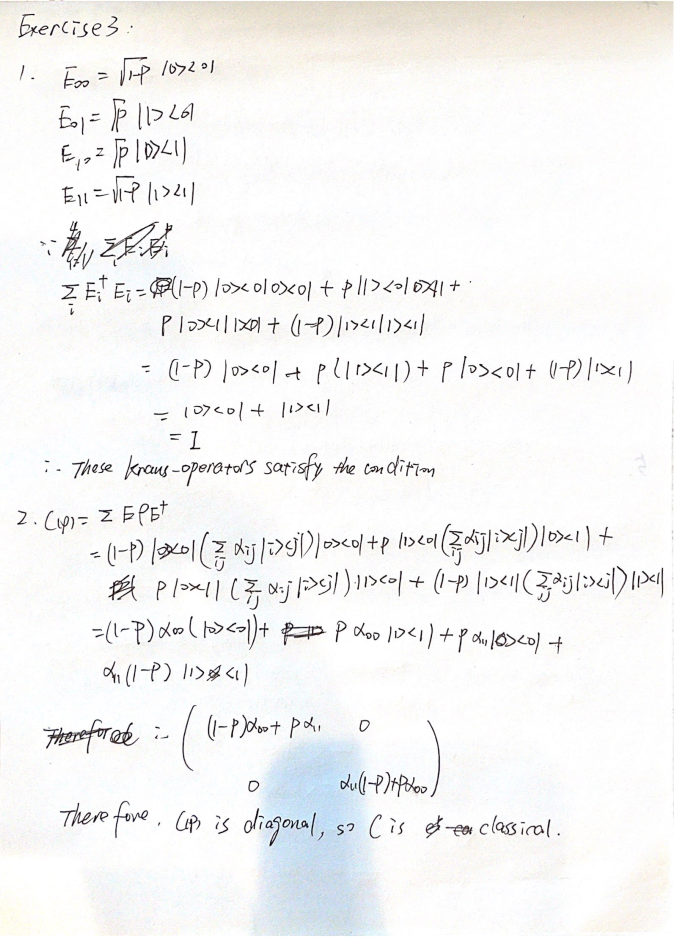 Exercise 3.
1. E₀₀ = √1-P |0><0|
E₀₁ = √P |1><0|
E₁₀ = √P |0><1|
E₁₁ = √1-P |1><1|
Σᵢ Eᵢ† Eᵢ = (1-P) |0><0|0><0| + P|1><0|0><1| +
P|0><1|1><0| + (1-P)|1><1|1><1|
= (1-P) |0><0| + P(|1><1|) + P|0><0| + (1-P)|1><1|
= |0><0| + |1><1|
= I
∴ These kraus-operators satisfy the condition
2. C(ρ) = Σ EρE†
= (1-P) |0><0| (Σᵢⱼ αij |i><j|) |0><0| + P |1><0| (Σᵢⱼ αij |i><j|) |0><1| +
P|0><1| (Σᵢⱼ αij |i><j|) |1><0| + (1-P) |1><1| (Σᵢⱼ αij |i><j|) |1><1|
= (1-P) α₀₀ (|0><0|) + P α₀₀ |1><1| + P α₁₁ |0><0| +
α₁₁ (1-P) |1><1|
∴ ( (1-P)α₀₀ + Pα₁₁ 0
0 α₁₁(1-P)+Pα₀₀ )
Therefore, C(ρ) is diagonal, so C is classical.